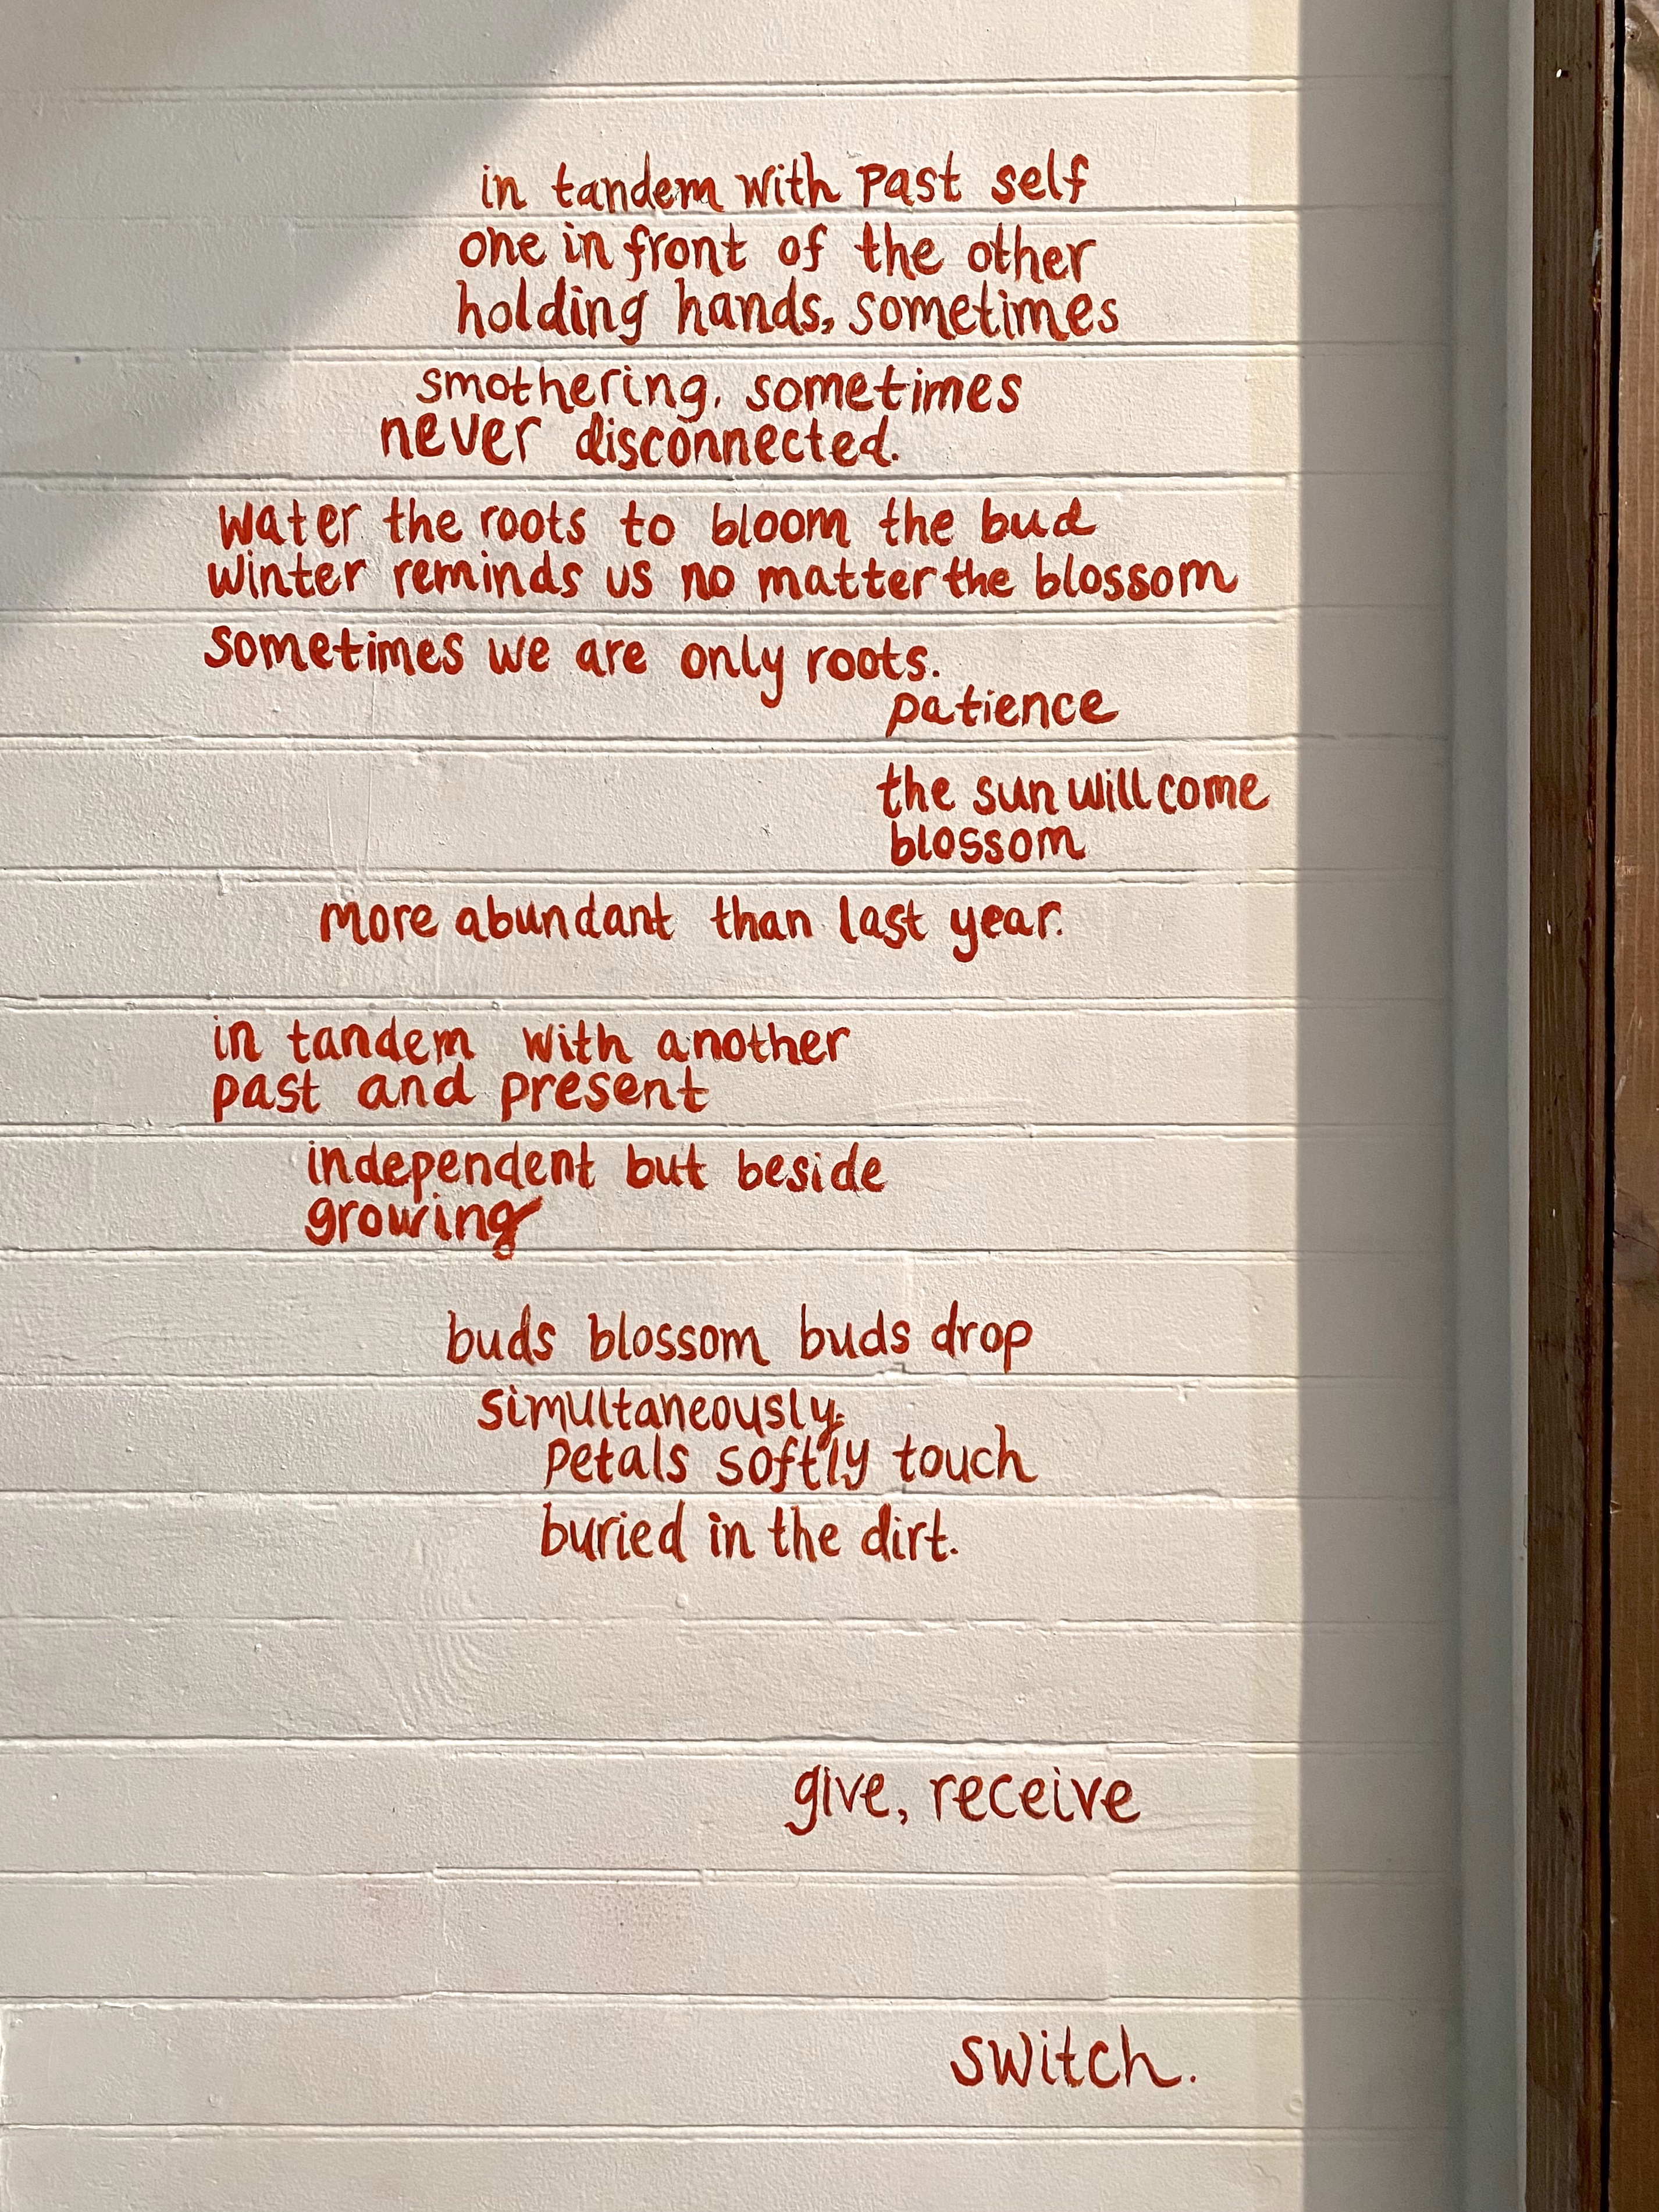 in tandem with past self
one in front of the other
holding hands, sometimes
smothering, sometimes
never disconnected.
water the roots to bloom the bud
winter reminds us no matter the blossom
sometimes we are only roots.
patience
the sun will come
blossom
more abundant than last year.
in tandem with another
past and present
independent but beside
growing
buds blossom buds drop
simultaneously.
petals softly touch
buried in the dirt.
give, receive
switch.